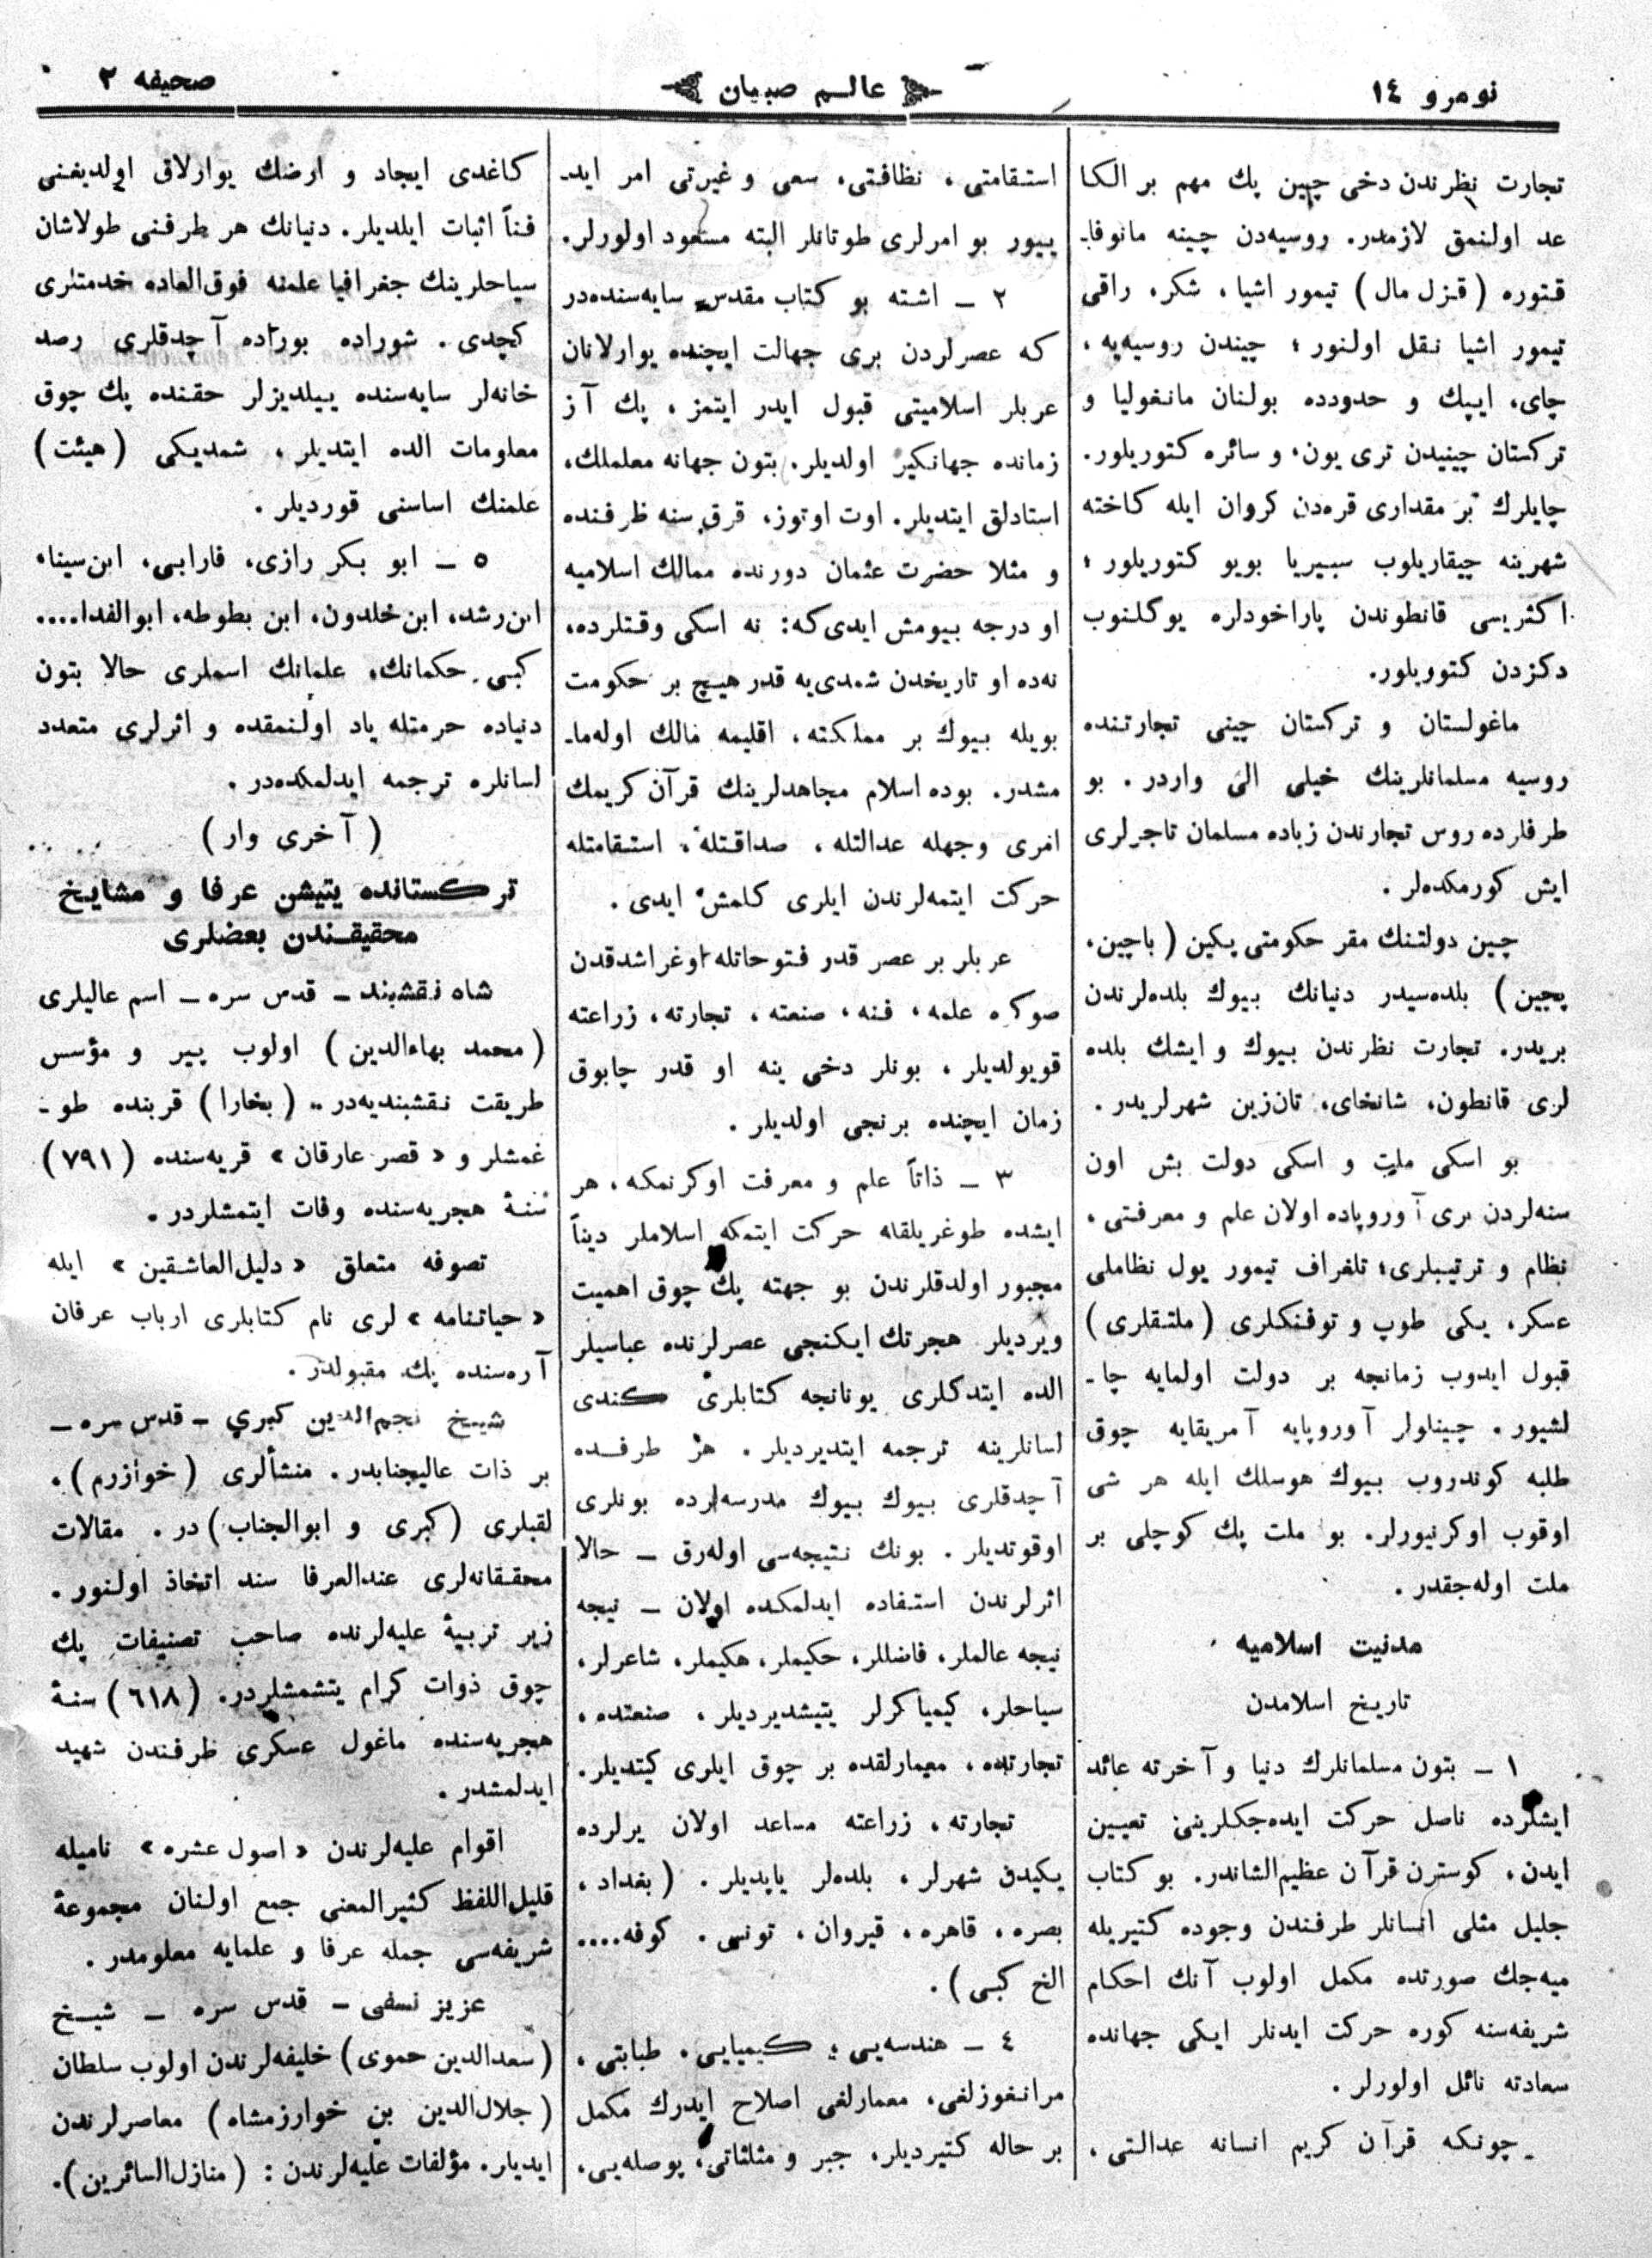 نومرو ١٤
عالم صبیان
صحیفه ٢
تجارت نظرندن دخی چین پك مهم بر الكا
عد اولنمق لازمدر. روسیه‌دن چینه مانوفا-
قتوره (قزل مال) تیمور اشیا، شكر، راقی
تیمور اشیا نقل اولنور؛ چیندن روسیه‌یه،
چای، ایپك و حدودده بولنان مانغولیا و
تركستان چینیدن تری یون، و سائره كتوریلور.
چایلرك بر مقداری قره‌دن كروان ایله كاخته
شهرینه چیقاریلوب سیبیریا بویو كتوریلور؛
اكثریسی قانطوندن پاراخودلره یوكلنوب
دكزدن كتوریلور.
ماغولستان و تركستان چینی تجارتنده
روسیه مسلمانلرینك خیلی الی واردر. بو
طرفلرده روس تجارندن زیاده مسلمان تاجرلری
ایش كورمكده‌لر.
چین دولتنك مقر حكومتی پكین (باچین،
پجین) بلده‌سیدر دنیانك بیوك بلده‌لرندن
بریدر. تجارت نظرندن بیوك و ایشك بلده
لری قانطون، شانخای، تان‌زین شهرلریدر.
بو اسكی ملیت و اسكی دولت بش اون
سنه‌لردن بری آوروپاده اولان علم و معرفتی،
نظام و ترتیبلری؛ تلغراف تیمور یول نظاملی
عسكر، یكی طوپ و توفنكلری (ملتقلری)
قبول ایدوب زمانجه بر دولت اولمایه چا-
لشیور. چینلولر آوروپایه آمریقایه چوق
طلبه كوندروب بیوك هوسلك ایله هر شی
اوقوب اوكرنیورلر. بو ملت پك كوچلی بر
ملت اوله‌جقدر.
مدنیت اسلامیه
تاریخ اسلامدن
١ — بتون مسلمانلرك دنیا و آخرته عائد
ایشلرده ناصل حركت ایده‌جكلرینی تعیین
ایدن، كوسترن قرآن عظیم‌الشاندر. بو كتاب
جلیل مثلی انسانلر طرفندن وجوده كتیریله
میه‌جك صورتده مكمل اولوب آنك احكام
شریفه‌سنه كوره حركت ایدنلر ایكی جهانده
سعادته نائل اولورلر.
چونكه قرآن كریم انسانه عدالتی،
استقامتی، نظافتی، سعی و غیرتی امر اید-
ییور بو امرلری طوتانلر البته مسعود اولورلر.
٢ — اشته بو كتاب مقدس سایه‌سنده‌در
كه عصرلردن بری جهالت ایچنده یوارلانان
عربلر اسلامیتی قبول ایدر ایتمز، پك آز
زمانده جهانكیر اولدیلر. بتون جهانه معلملك،
استادلق ایتدیلر. اوت اوتوز، قرق سنه ظرفنده
و مثلا حضرت عثمان دورنده ممالك اسلامیه
او درجه بیومش ایدی‌كه: نه اسكی وقتلرده،
نه‌ده او تاریخدن شمدی‌یه قدر هیچ بر حكومت
بویله بیوك بر مملكته، اقلیمه مالك اوله‌ما-
مشدر. بوده اسلام مجاهدلرینك قرآن كریمك
امری وجهله عدالتله، صداقتله، استقامتله
حركت ایتمه‌لرندن ایلری كلمش ایدی.
عربلر بر عصر قدر فتوحاتله اوغراشدقدن
صوكره علمه، فنه، صنعته، تجارته، زراعته
قویولدیلر، بونلر دخی ینه او قدر چابوق
زمان ایچنده برنجی اولدیلر.
٣ — ذاتاً علم و معرفت اوكرنمكه، هر
ایشده طوغریلقله حركت ایتمكه اسلاملر دیناً
مجبور اولدقلرندن بو جهته پك چوق اهمیت
ویردیلر هجرتك ایكنجی عصرلرنده عباسیلر
الده ایتدكلری یونانجه كتابلری كندی
لسانلرینه ترجمه ایتدیردیلر. هر طرفده
آچدقلری بیوك بیوك مدرسه‌لرده بونلری
اوقوتدیلر. بونك نتیجه‌سی اوله‌رق — حالا
اثرلرندن استفاده ایدلمكده اولان — نیجه
نیجه عالملر، فاضللر، حكیملر، هكیملر، شاعرلر،
سیاحلر، كیمیاكرلر یتیشدیردیلر، صنعتده،
تجارتده، معیمارلقده بر چوق ایلری كیتدیلر.
تجارته، زراعته مساعد اولان یرلرده
یكیدن شهرلر، بلده‌لر یاپدیلر. (بغداد،
بصره، قاهره، قیروان، تونس. كوفه....
الخ كبی).
٤ — هندسه‌یی؛ كیمیایی، طبابتی،
مرانغوزلغی، معمارلغی اصلاح ایدرك مكمل
بر حاله كتیردیلر، جبر و مثلثاتی، پوصله‌یی،
كاغدی ایجاد و ارضك یوارلاق اولدیغنی
فناً اثبات ایلدیلر. دنیانك هر طرفنی طولاشان
سیاحلرینك جغرافیا علمنه فوق‌العاده خدمتلری
كچدی. شوراده بوراده آچدقلری رصد
خانه‌لر سایه‌سنده ییلدیزلر حقنده پك چوق
معلومات الده ایتدیلر، شمدیكی (هیئت)
علمنك اساسنی قوردیلر.
٥ — ابو بكر رازی، فارابی، ابن‌سینا،
ابن‌رشد، ابن‌خلدون، ابن بطوطه، ابوالفدا....
كبی حكمانك، علمانك اسملری حالا بتون
دنیاده حرمتله یاد اولنمقده و اثرلری متعدد
لسانلره ترجمه ایدلمكده‌در.
(آخری وار)
تركستانده یتیشن عرفا و مشایخ
محقیقندن بعضلری
شاه نقشبند — قدس سره — اسم عالیلری
(محمد بهاءالدین) اولوب پیر و مؤسس
طریقت نقشبندیه‌در.. (بخارا) قربنده طو-
غمشلر و «قصر عارقان» قریه‌سنده (٧٩١)
سنهٔ هجریه‌سنده وفات ایتمشلردر.
تصوفه متعلق «دلیل‌العاشقین» ایله
«حیاتنامه» لری نام كتابلری ارباب عرفان
آره‌سنده پك مقبولدر.
شیخ نجم‌الدین كبري — قدس سره —
بر ذات عالیجنابدر. منشألری (خوازرم).
لقبلری (كبری و ابوالجناب) در. مقالات
محققانه‌لری عندالعرفا سند اتخاذ اولنور.
زیر تربیهٔ علیه‌لرنده صاحب تصنیفات پك
چوق ذوات كرام یتشمشلردر. (٦١٨) سنهٔ
هجریه‌سنده ماغول عسكری طرفندن شهید
ایدلمشدر.
اقوام علیه‌لرندن «اصول عشره» نامیله
قلیل‌اللفظ كثیرالمعنی جمع اولنان مجموعهٔ
شریفه‌سی جمله عرفا و علمایه معلومدر.
عزیز نسفی — قدس سره — شیخ
(سعدالدین حموی) خلیفه‌لرندن اولوب سلطان
(جلال‌الدین بن خوارزمشاه) معاصرلرندن
ایدیلر. مؤلفات علیه‌لرندن: (منازل‌السائرین).